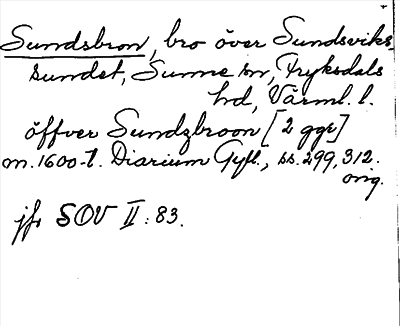 Sundsbron, bro över Sundsviks-
sundet, Sunne sn, Fryksdals
hd, Värml. l.
öffver Sundzbroon [2 ggr]
m. 1600-t. Diarium Gyll., ss. 299, 312.
orig.
jfr SOV II: 83.